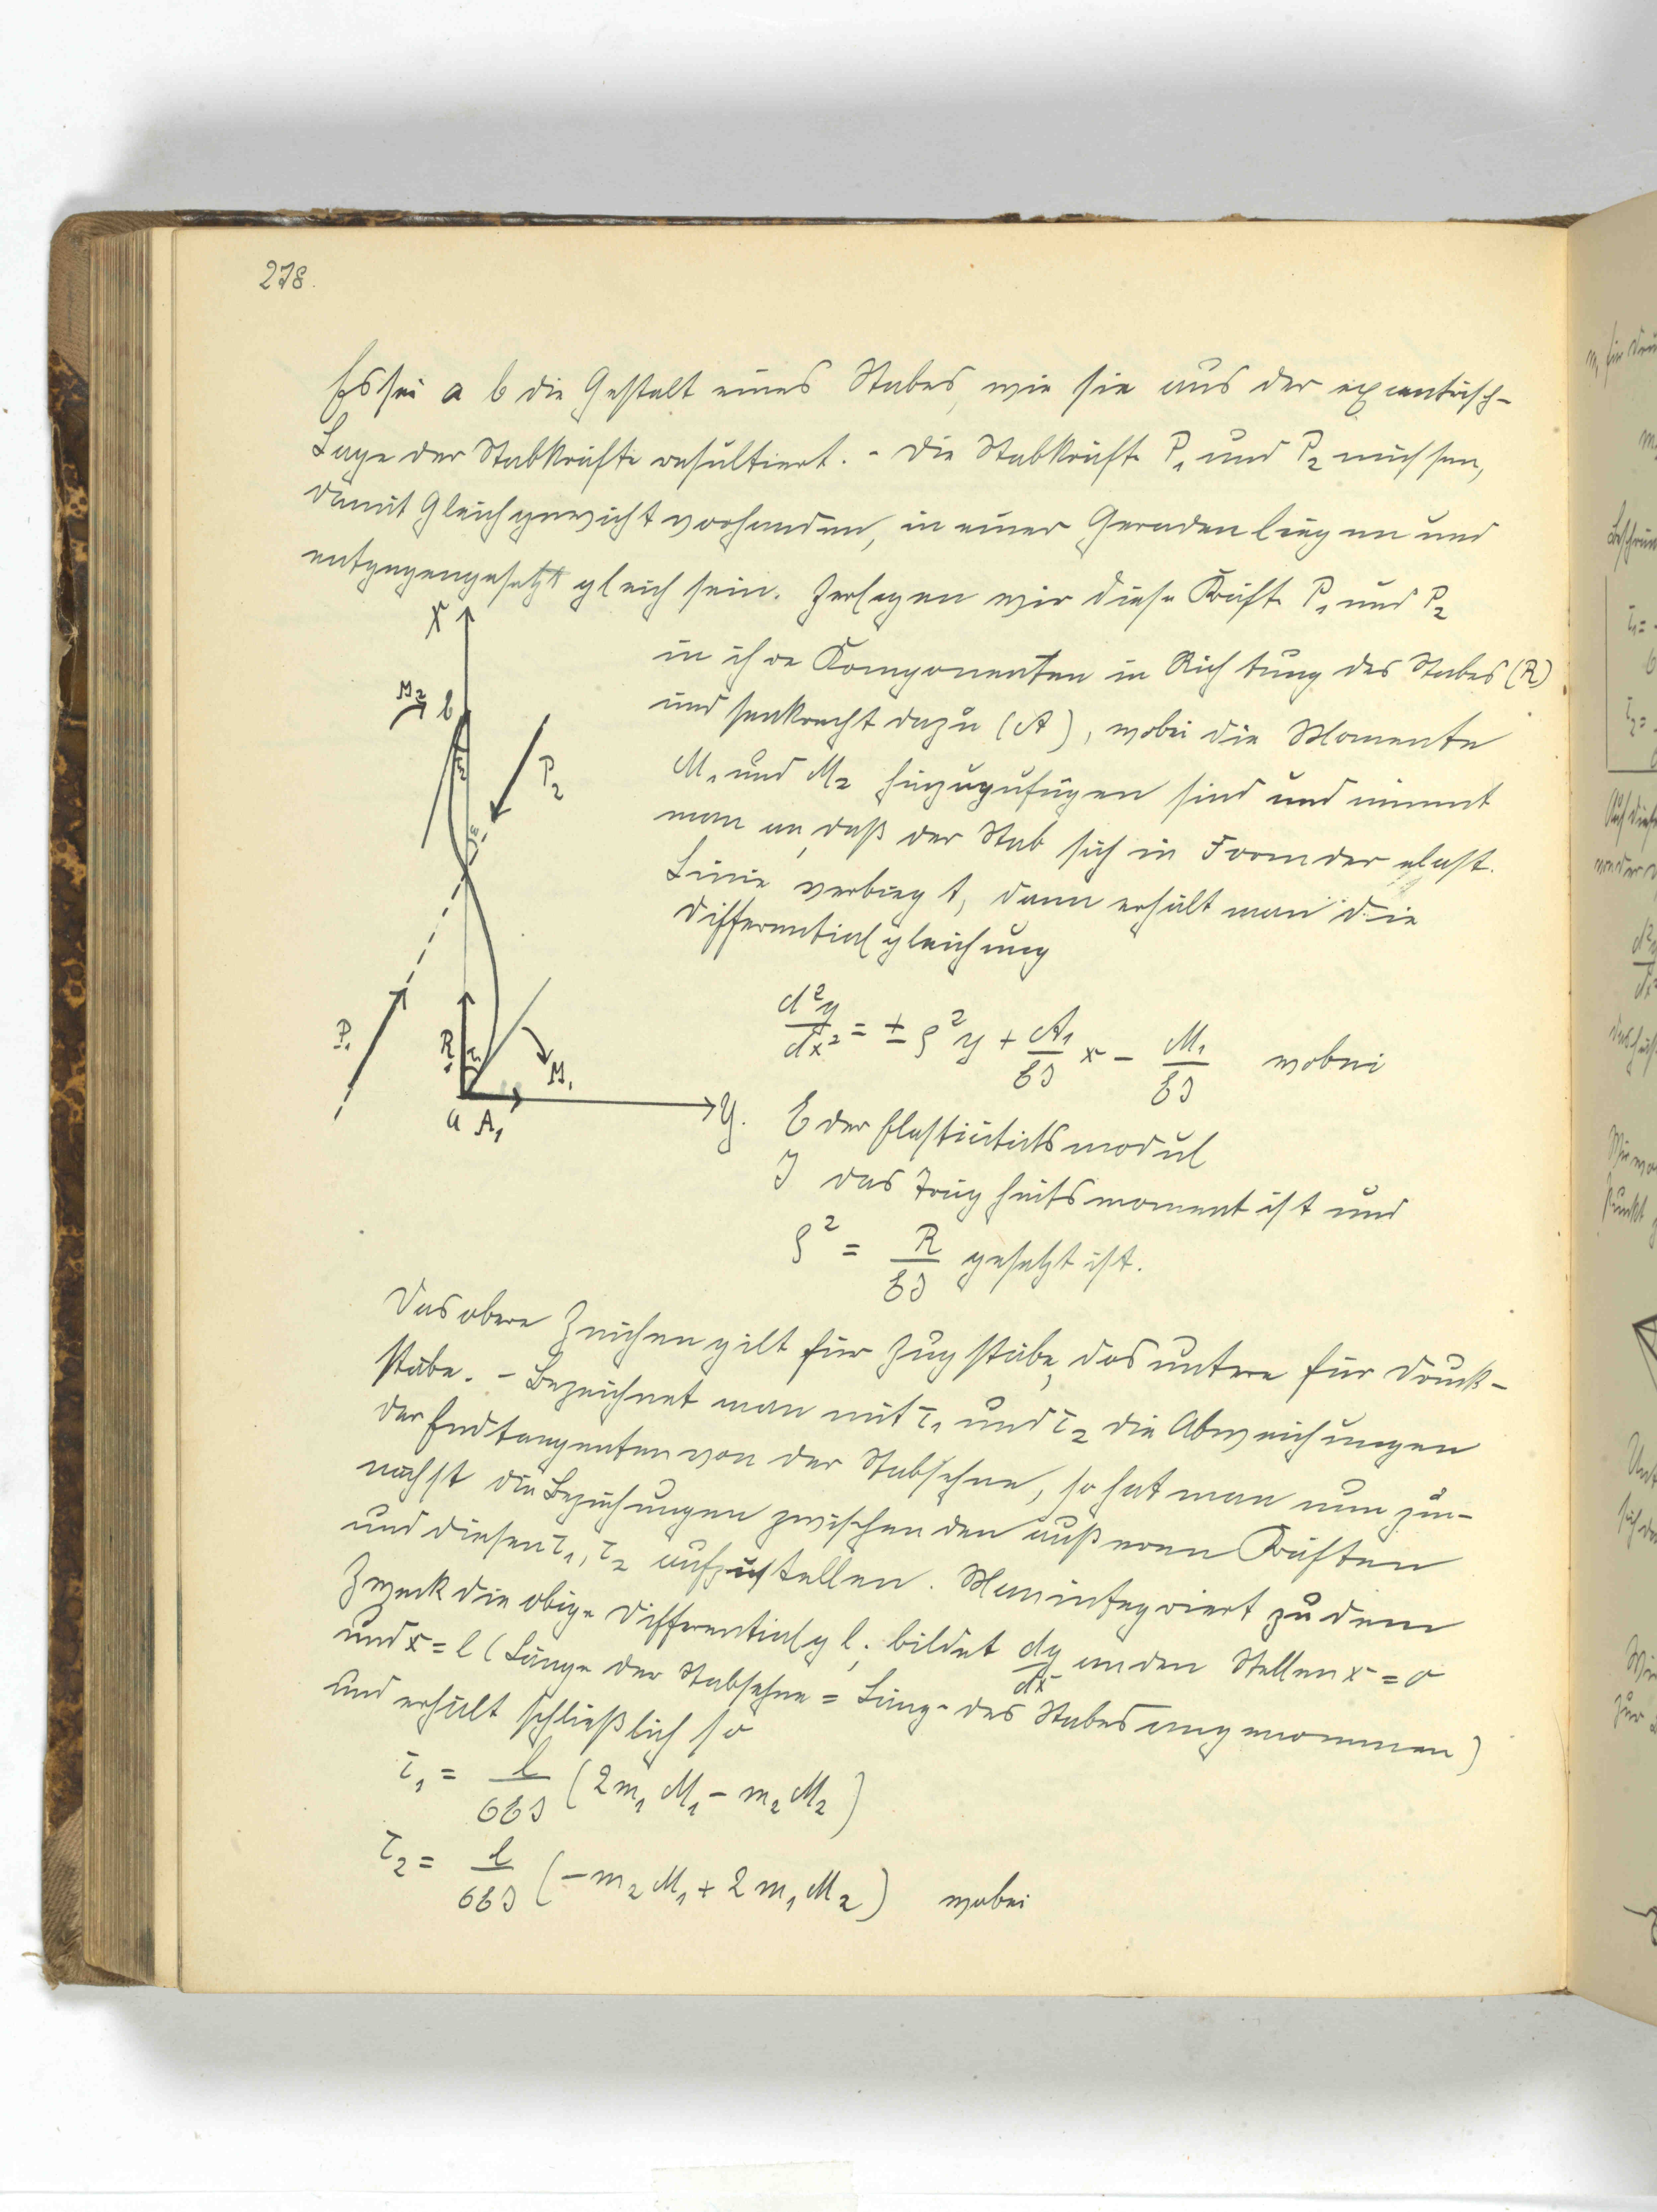 278.
Es sei a b die Gestalt eines Stabes, wie sie aus der exzentrisch-
Lage der Stabkräfte resultiert. - Die Stabkräfte P₁ und P₂ müssen,
damit Gleichgewicht vorhanden, in einer Geraden liegen und
entgegengesetzt gleich sein. Zerlegen wir diese Kräfte P₁ und P₂
in ihre Komponenten in Richtung des Stabes (R)
und senkrecht dazu (A), wobei die Momente
M₁ und M₂ hinzuzufügen sind und nimmt
man an, daß der Stab sich in Form der elast.
Linie verbiegt, dann erhält man die
Differentialgleichung
d²y/dx² = ± ρ²y + A₁/EJ x - M₁/EJ wobei
E der Elastizitätsmodul
J das Trägheitsmoment ist und
ρ² = R/EJ gesetzt ist.
X
M₂ b
τ₂
P₂
P₁
R₁ τ₁
M₁
a A₁
y.
Das obere Zeichen gilt für Zugstäbe, das untere für Druck-
stäbe. - Bezeichnet man mit τ₁ und τ₂ die Abweichungen
der Endtangenten von der Stabsehne, so hat man nun zu-
nächst die Beziehungen zwischen den äußeren Kräften
und diesen τ₁, τ₂ aufzustellen. Man integriert zu dem
Zweck die obige Differentialgl., bildet dy/dx an den Stellen x = 0
und x = l (Länge der Stabsehne = Länge des Stabes angenommen)
und erhält schließlich so
τ₁ = l/6EJ (2m₁ M₁ - m₂ M₂)
τ₂ = l/6EJ (-m₂ M₁ + 2m₁ M₂) wobei